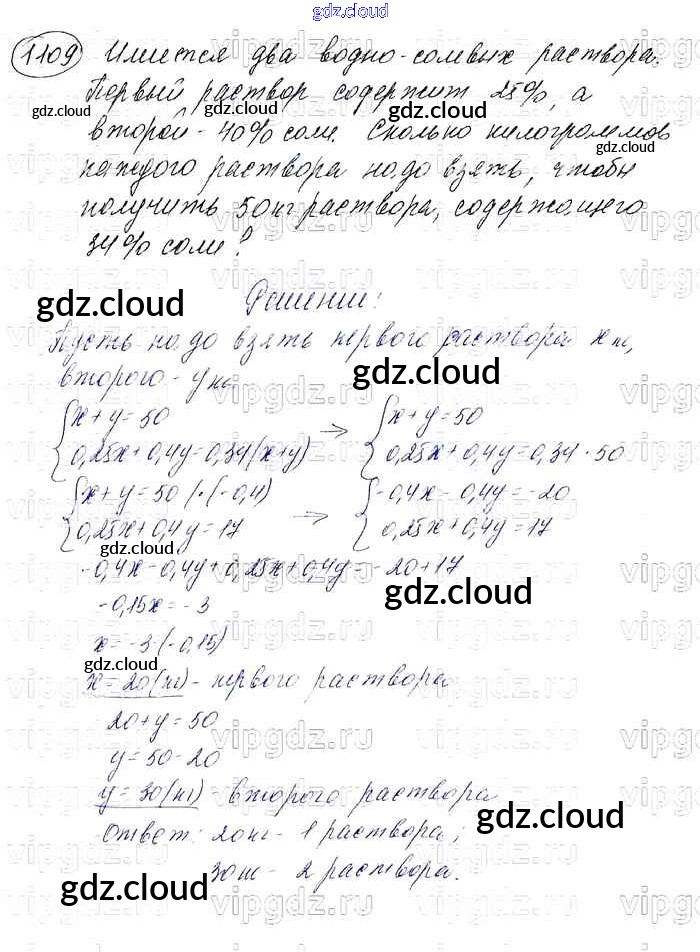 gdz.cloud
1109 Имеется два водно-солевых раствора.
Первый раствор содержит 25%, а
второй - 40% соли. Сколько килограммов
каждого раствора надо взять, чтобы
получить 50 кг раствора, содержащего
34% соли?
Решение:
Пусть надо взять первого раствора x кг,
второго - y кг.
{ x + y = 50 → { x + y = 50
0,25x + 0,4y = 0,34(x+y) 0,25x + 0,4y = 0,34 · 50
{ x + y = 50 / · (-0,4) → { -0,4x - 0,4y = -20
0,25x + 0,4y = 17 0,25x + 0,4y = 17
-0,4x - 0,4y + 0,25x + 0,4y = -20 + 17
-0,15x = -3
x = -3 : (-0,15)
x = 20 (кг) - первого раствора
20 + y = 50
y = 50 - 20
y = 30 (кг) - второго раствора
Ответ: 20 кг - 1 раствора;
30 кг - 2 раствора.
gdz.cloud
vipgdz.ru